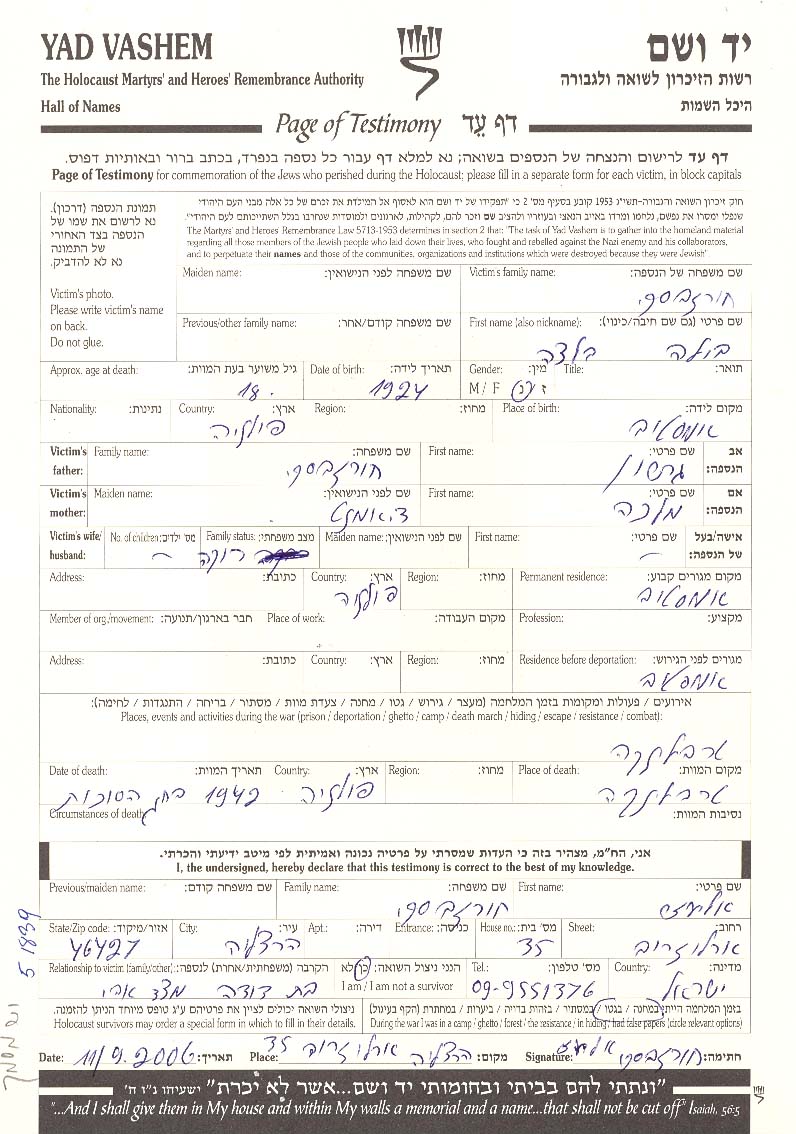 YAD VASHEM
יד ושם
The Holocaust Martyrs' and Heroes' Remembrance Authority
רשות הזיכרון לשואה ולגבורה
Hall of Names
היכל השמות
Page of Testimony דף עד
דף עד לרישום והנצחה של הנספים בשואה; נא למלא דף עבור כל נספה בנפרד, בכתב ברור ובאותיות דפוס.
Page of Testimony for commemoration of the Jews who perished during the Holocaust; please fill in a separate form for each victim, in block capitals
תמונת הנספה (דרכון).
נא לרשום את שמו של
הנספה בצד האחורי
של התמונה
נא לא להדביק.
Victim's photo.
Please write victim's name
on back.
Do not glue.
חוק זיכרון השואה והגבורה-תשי"ג 1953 קובע בסעיף מס' 2 כי "תפקידו של יד ושם הוא לאסוף אל המולדת את זכרם של כל אלה מבני העם היהודי
שנפלו ומסרו את נפשם, נלחמו ומרדו באויב הנאצי ובעוזריו ולהציב שם וזכר להם, לקהילות, לארגונים ולמוסדות שנחרבו בגלל השתייכותם לעם היהודי".
The Martyrs' and Heroes' Remembrance Law 5713-1953 determines in section 2 that: "The task of Yad Vashem is to gather into the homeland material
regarding all those members of the Jewish people who laid down their lives, who fought and rebelled against the Nazi enemy and his collaborators,
and to perpetuate their names and those of the communities, organizations and institutions which were destroyed because they were Jewish".
Maiden name: שם משפחה לפני הנישואין: Victim's family name: שם משפחה של הנספה:
Previous/other family name: שם משפחה קודם/אחר: First name (also nickname): שם פרטי (גם שם חיבה/כינוי):
Approx. age at death: גיל משוער בעת המוות: Date of birth: תאריך לידה: Gender: מין: Title: תואר:
18. 1924 M / F ז / נ
Nationality: נתינות: Country: ארץ: Region: מחוז: Place of birth: מקום לידה:
פולניה
Victim's father: Family name: שם משפחה: First name: שם פרטי: אב הנספה:
גרשון
Victim's mother: Maiden name: שם לפני הנישואין: First name: שם פרטי: אם הנספה:
מלכה
Victim's wife/ husband: No. of children: מס' ילדים: Family status: מצב משפחתי: Maiden name: שם לפני הנישואין: First name: שם פרטי: אישה/בעל של הנספה:
רווקה
Address: כתובת: Country: ארץ: Region: מחוז: Permanent residence: מקום מגורים קבוע:
פולניה
Member of org./movement: חבר בארגון/תנועה: Place of work: מקום העבודה: Profession: מקצוע:
Address: כתובת: Country: ארץ: Region: מחוז: Residence before deportation: מגורים לפני הגירוש:
אירועים / פעולות ומקומות בזמן המלחמה (מעצר / גירוש / גטו / מחנה / צעדת מוות / מסתור / בריחה / התנגדות / לחימה):
Places, events and activities during the war (prison / deportation / ghetto / camp / death march / hiding / escape / resistance / combat):
טרבלינקה
Date of death: תאריך המוות: Country: ארץ: Region: מחוז: Place of death: מקום המוות:
בחג הסוכות 1942 פולניה טרבלינקה
Circumstances of death: נסיבות המוות:
אני, הח"מ, מצהיר בזה כי העדות שמסרתי על פרטיה נכונה ואמיתית לפי מיטב ידיעתי והכרתי.
I, the undersigned, hereby declare that this testimony is correct to the best of my knowledge.
Previous/maiden name: שם משפחה קודם: Family name: שם משפחה: First name: שם פרטי:
State/Zip code: אזור/מיקוד: City: עיר: Apt.: דירה: Entrance: כניסה: House no.: מס' בית: Street: רחוב:
46427 הרצליה 35 ארלוזרוב
Relationship to victim (family/other): הקרבה (משפחתית/אחרת) לנספה: הנני ניצול השואה: כן/לא Tel.: מס' טלפון: Country: מדינה:
בת דודה מצד אבי I am / I am not a survivor 09-9551376 ישראל
ניצולי השואה יכולים לציין את פרטיהם ע"ג טופס מיוחד הניתן להזמנה. בזמן המלחמה הייתי: במחנה / בגטו / במסתור / בזהות בדויה / ביערות / במחתרת (הקף בעיגול)
Holocaust survivors may order a special form in which to fill in their details. During the war I was in a camp / ghetto / forest / the resistance / in hiding / had false papers (circle relevant options)
Date: 11/9.2006 תאריך: Place: 35 ארלוזרוב הרצליה מקום: Signature: חתימה:
"ונתתי להם בביתי ובחומותי יד ושם...אשר לא יכרת" ישעיהו נ"ו ה'
"...And I shall give them in My house and within My walls a memorial and a name...that shall not be cut off" Isaiah, 56:5
5 1839